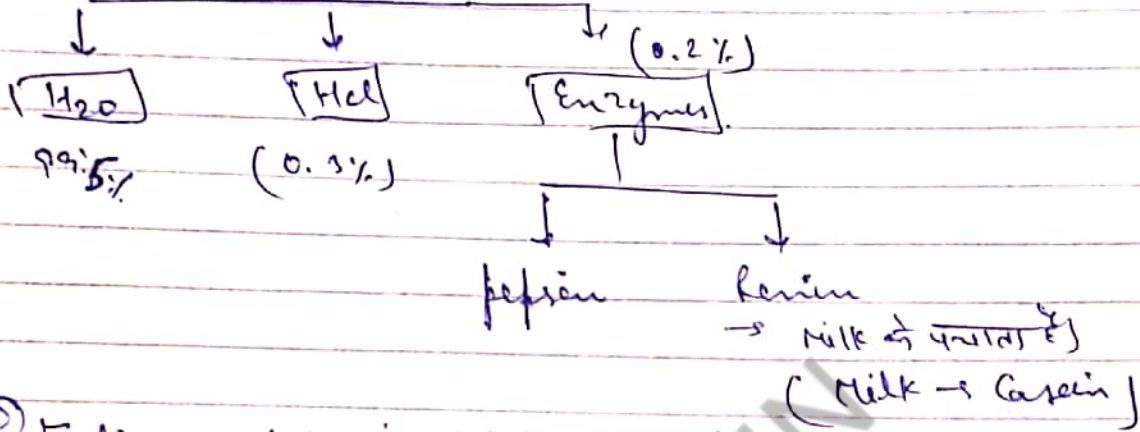 (0.2%)
H2O HCl Enzymes.
99.5% (0.3%)
pepsin Renin
→ Milk को पचाता है)
(Milk → Casein)